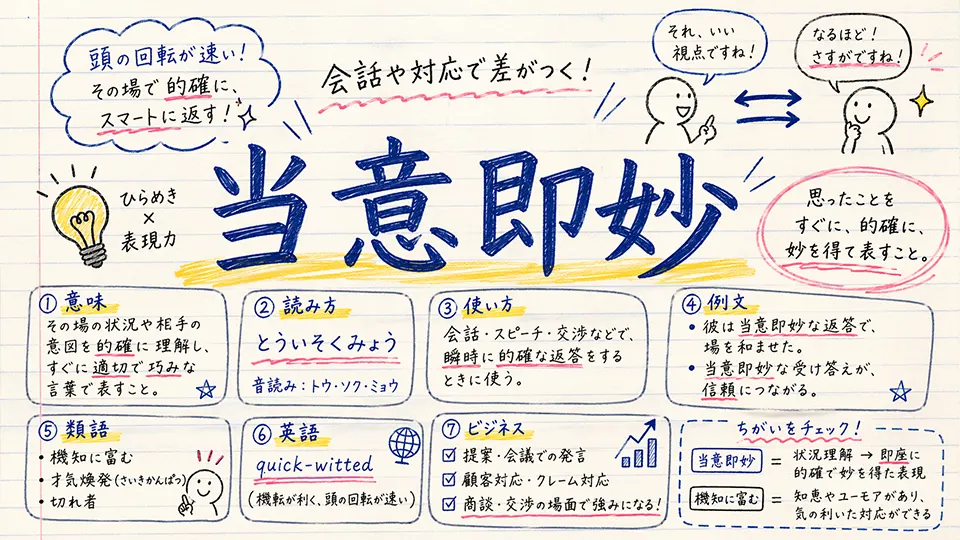 頭の回転が速い！
その場で的確に、
スマートに返す！
会話や対応で差がつく！
それ、いい
視点ですね！
なるほど！
さすがですね！
ひらめき
×
表現力
当意即妙
思ったことを
すぐに、的確に、
妙を得て表すこと。
① 意味
その場の状況や相手の
意図を的確に理解し、
すぐに適切で巧みな
言葉で表すこと。
② 読み方
とういそくみょう
音読み：トウ・ソク・ミョウ
③ 使い方
会話・スピーチ・交渉などで、
瞬時に的確な返答をする
ときに使う。
④ 例文
• 彼は当意即妙な返答で、
場を和ませた。
• 当意即妙な受け答えが、
信頼につながる。
⑤ 類語
• 機知に富む
• 才気煥発(さいきかんぱつ)
• 切れ者
⑥ 英語
quick-witted
(機転が利く、頭の回転が速い)
⑦ ビジネス
☑ 提案・会議での発言
☑ 顧客対応・クレーム対応
☑ 商談・交渉の場面で強みになる！
ちがいをチェック！
当意即妙 = 状況理解 → 即座に
的確で妙を得た表現
機知に富む = 知恵やユーモアがあり、
気の利いた対応ができる